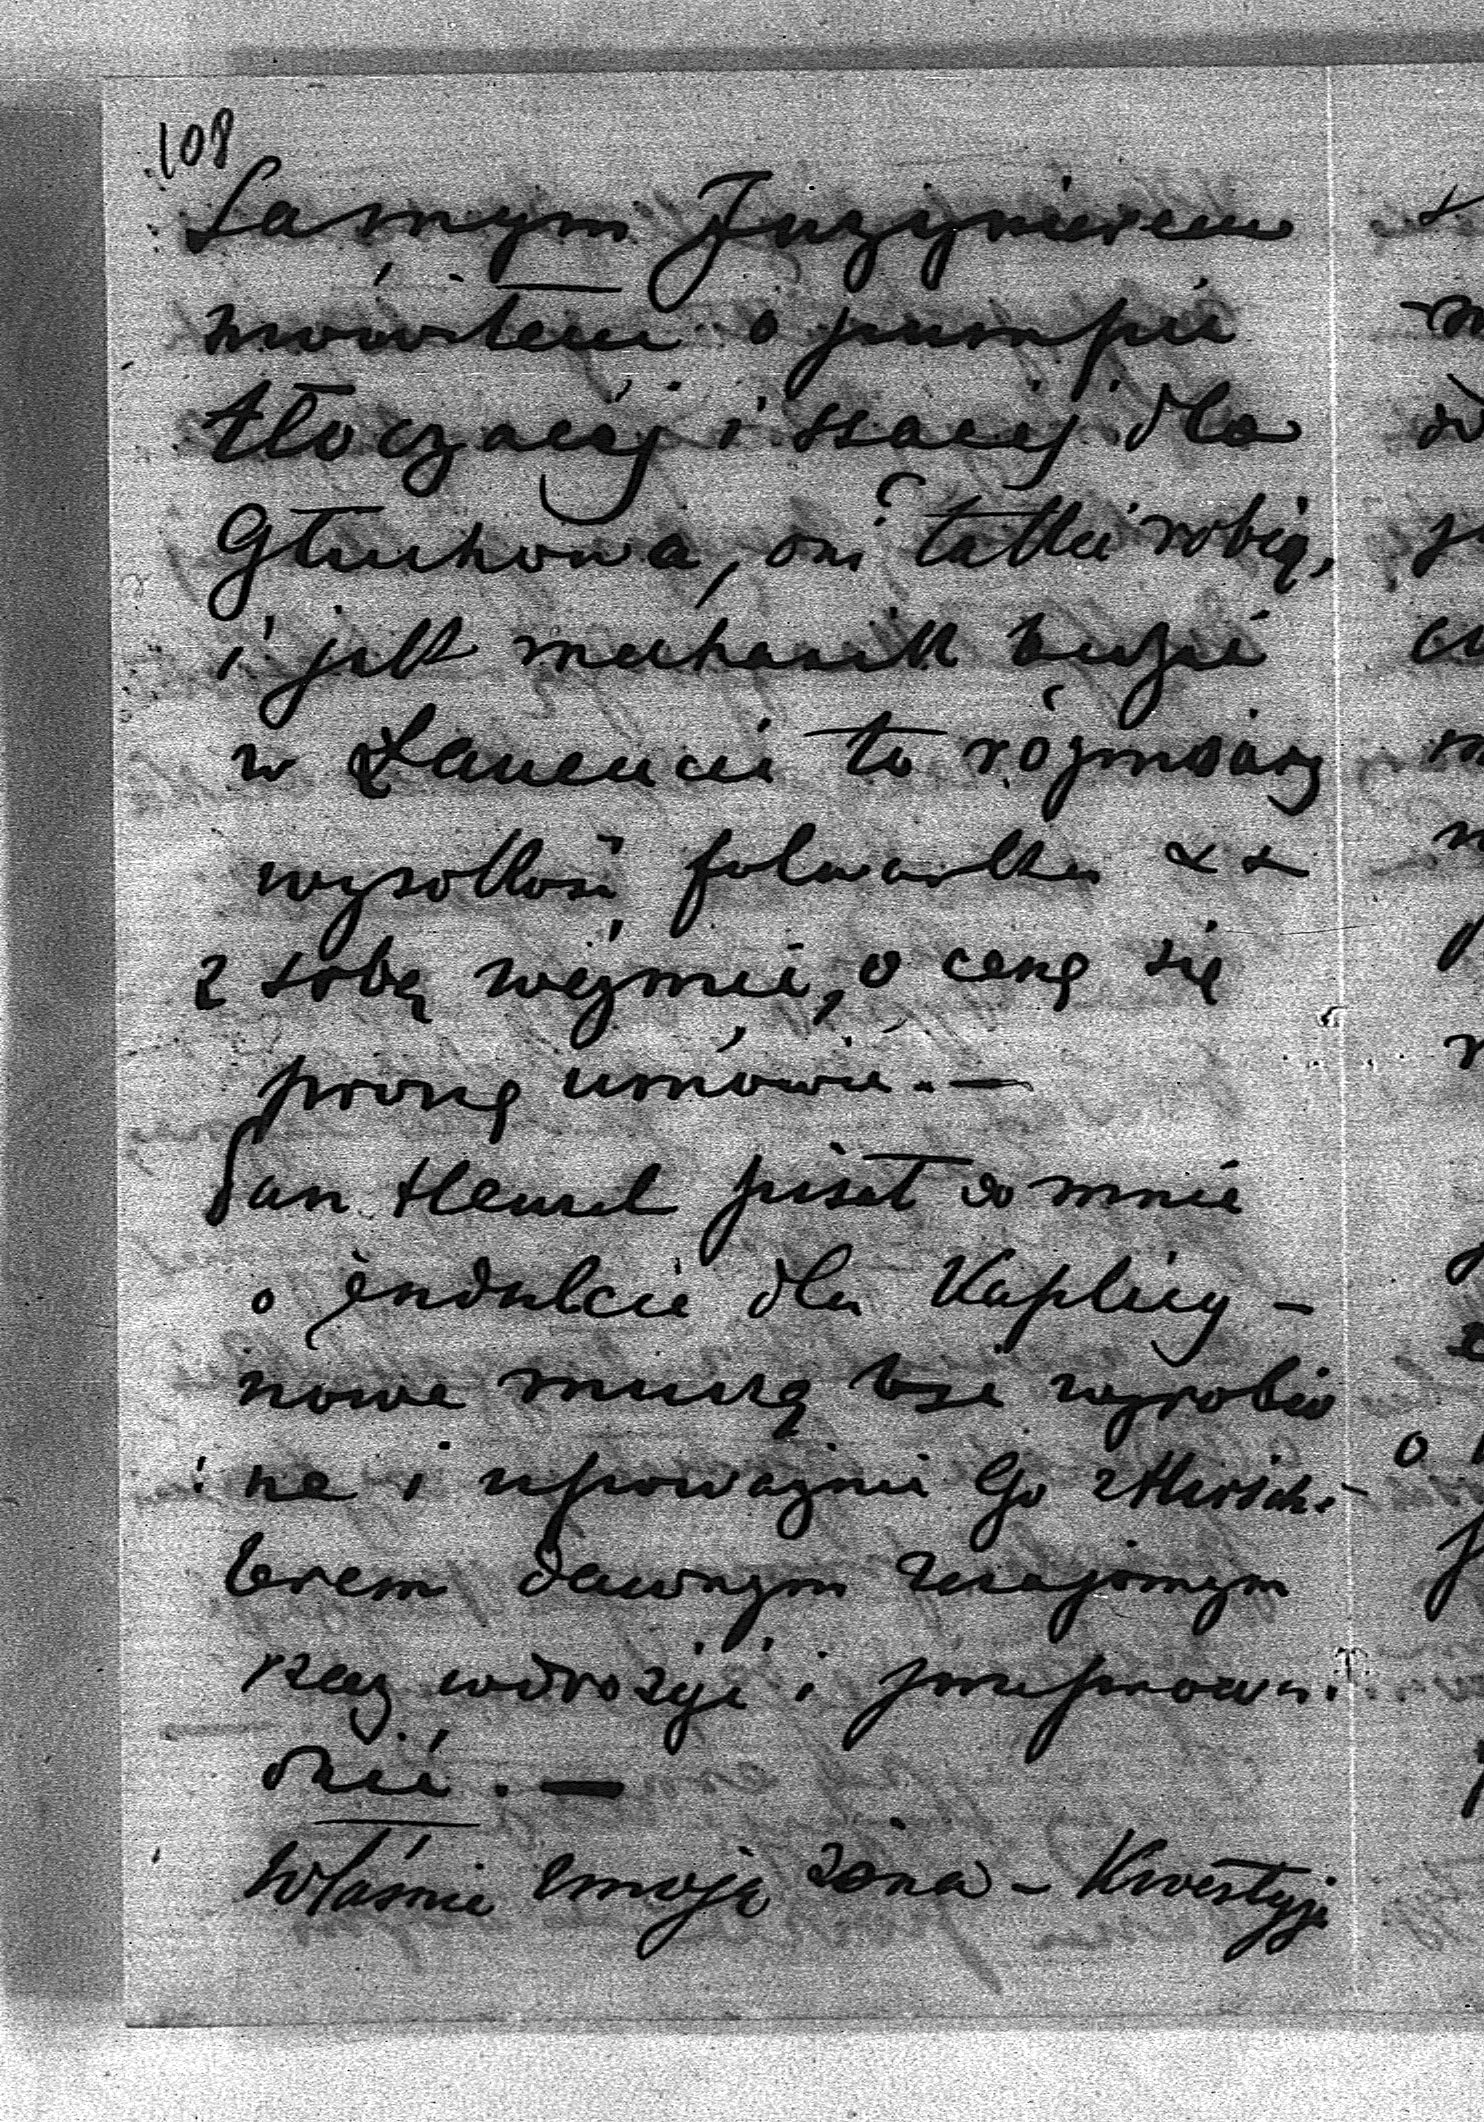 108
Samym Inzynierem
mówiłem o pumpie
tłoczącéj i ssącej dla
Głuchowa, oni takie robią,
i jak mechanik bedzie
w Łancucie to rózmiary
wysokość folwarku & &
z sobą weźmie, o cenę się
proszę umówić. —
Pan Hensel pisał do mnie
o indulcie dla Kaplicy –
nowe muszą być wyrobio
ne i upoważnie Go z
brem dawnym znajomym
rzecz wdrożyć i przeprowa
dzić. —
Właśnie moja żona – Kwestyje